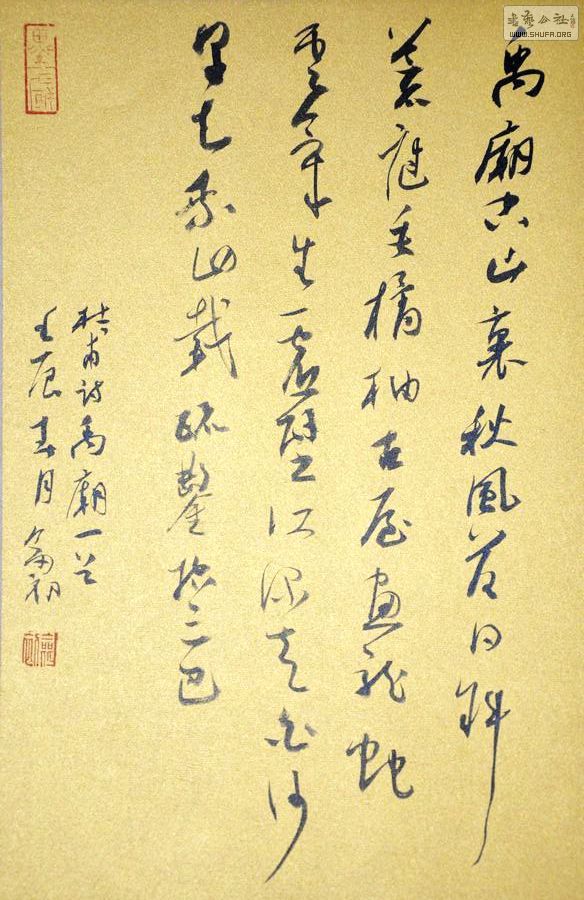 書藝公社
WWW.SHUFA.ORG
禹廟空山裏秋風落日斜
荒庭垂橘柚古屋畫龍蛇
雲氣生虛壁江深走白沙
早知乘四載疏鑿控三巴
杜甫詩禹廟一首
壬辰春月初